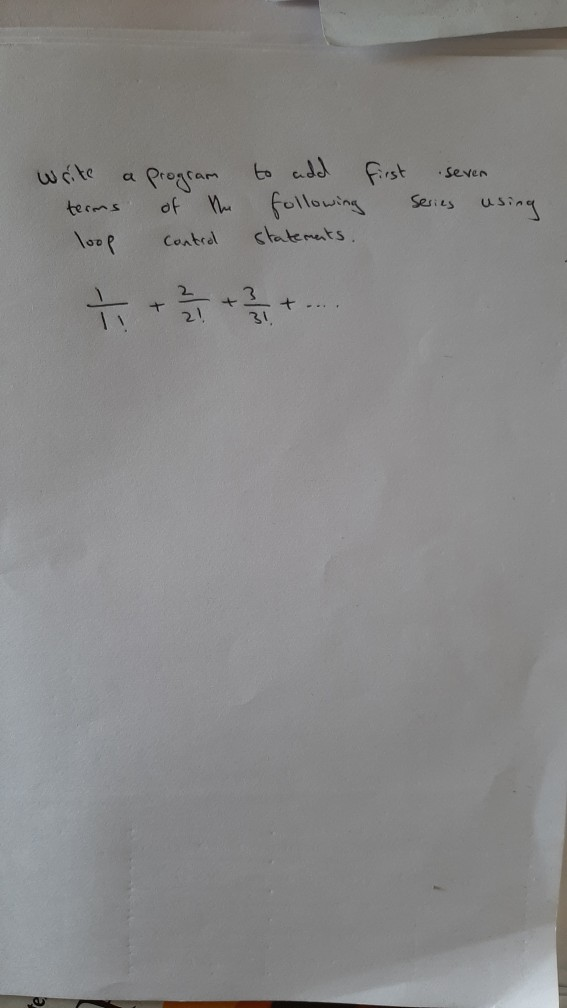 Write a program to add first seven
terms of the following series using
loop control statements.
1/1! + 2/2! + 3/3! + ....